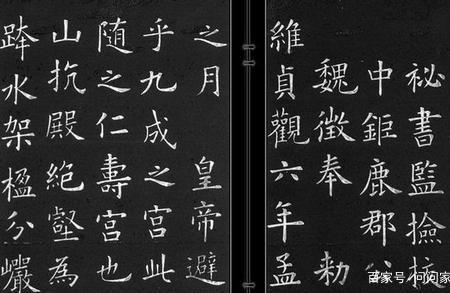 祕書監撿挍
中鉅鹿郡公
魏徵奉 勅
維貞觀六年孟
之月 皇帝避
乎九成之宫此
随之仁壽宫也
山抗殿絕壑為
跨水架楹分巖
百家号/